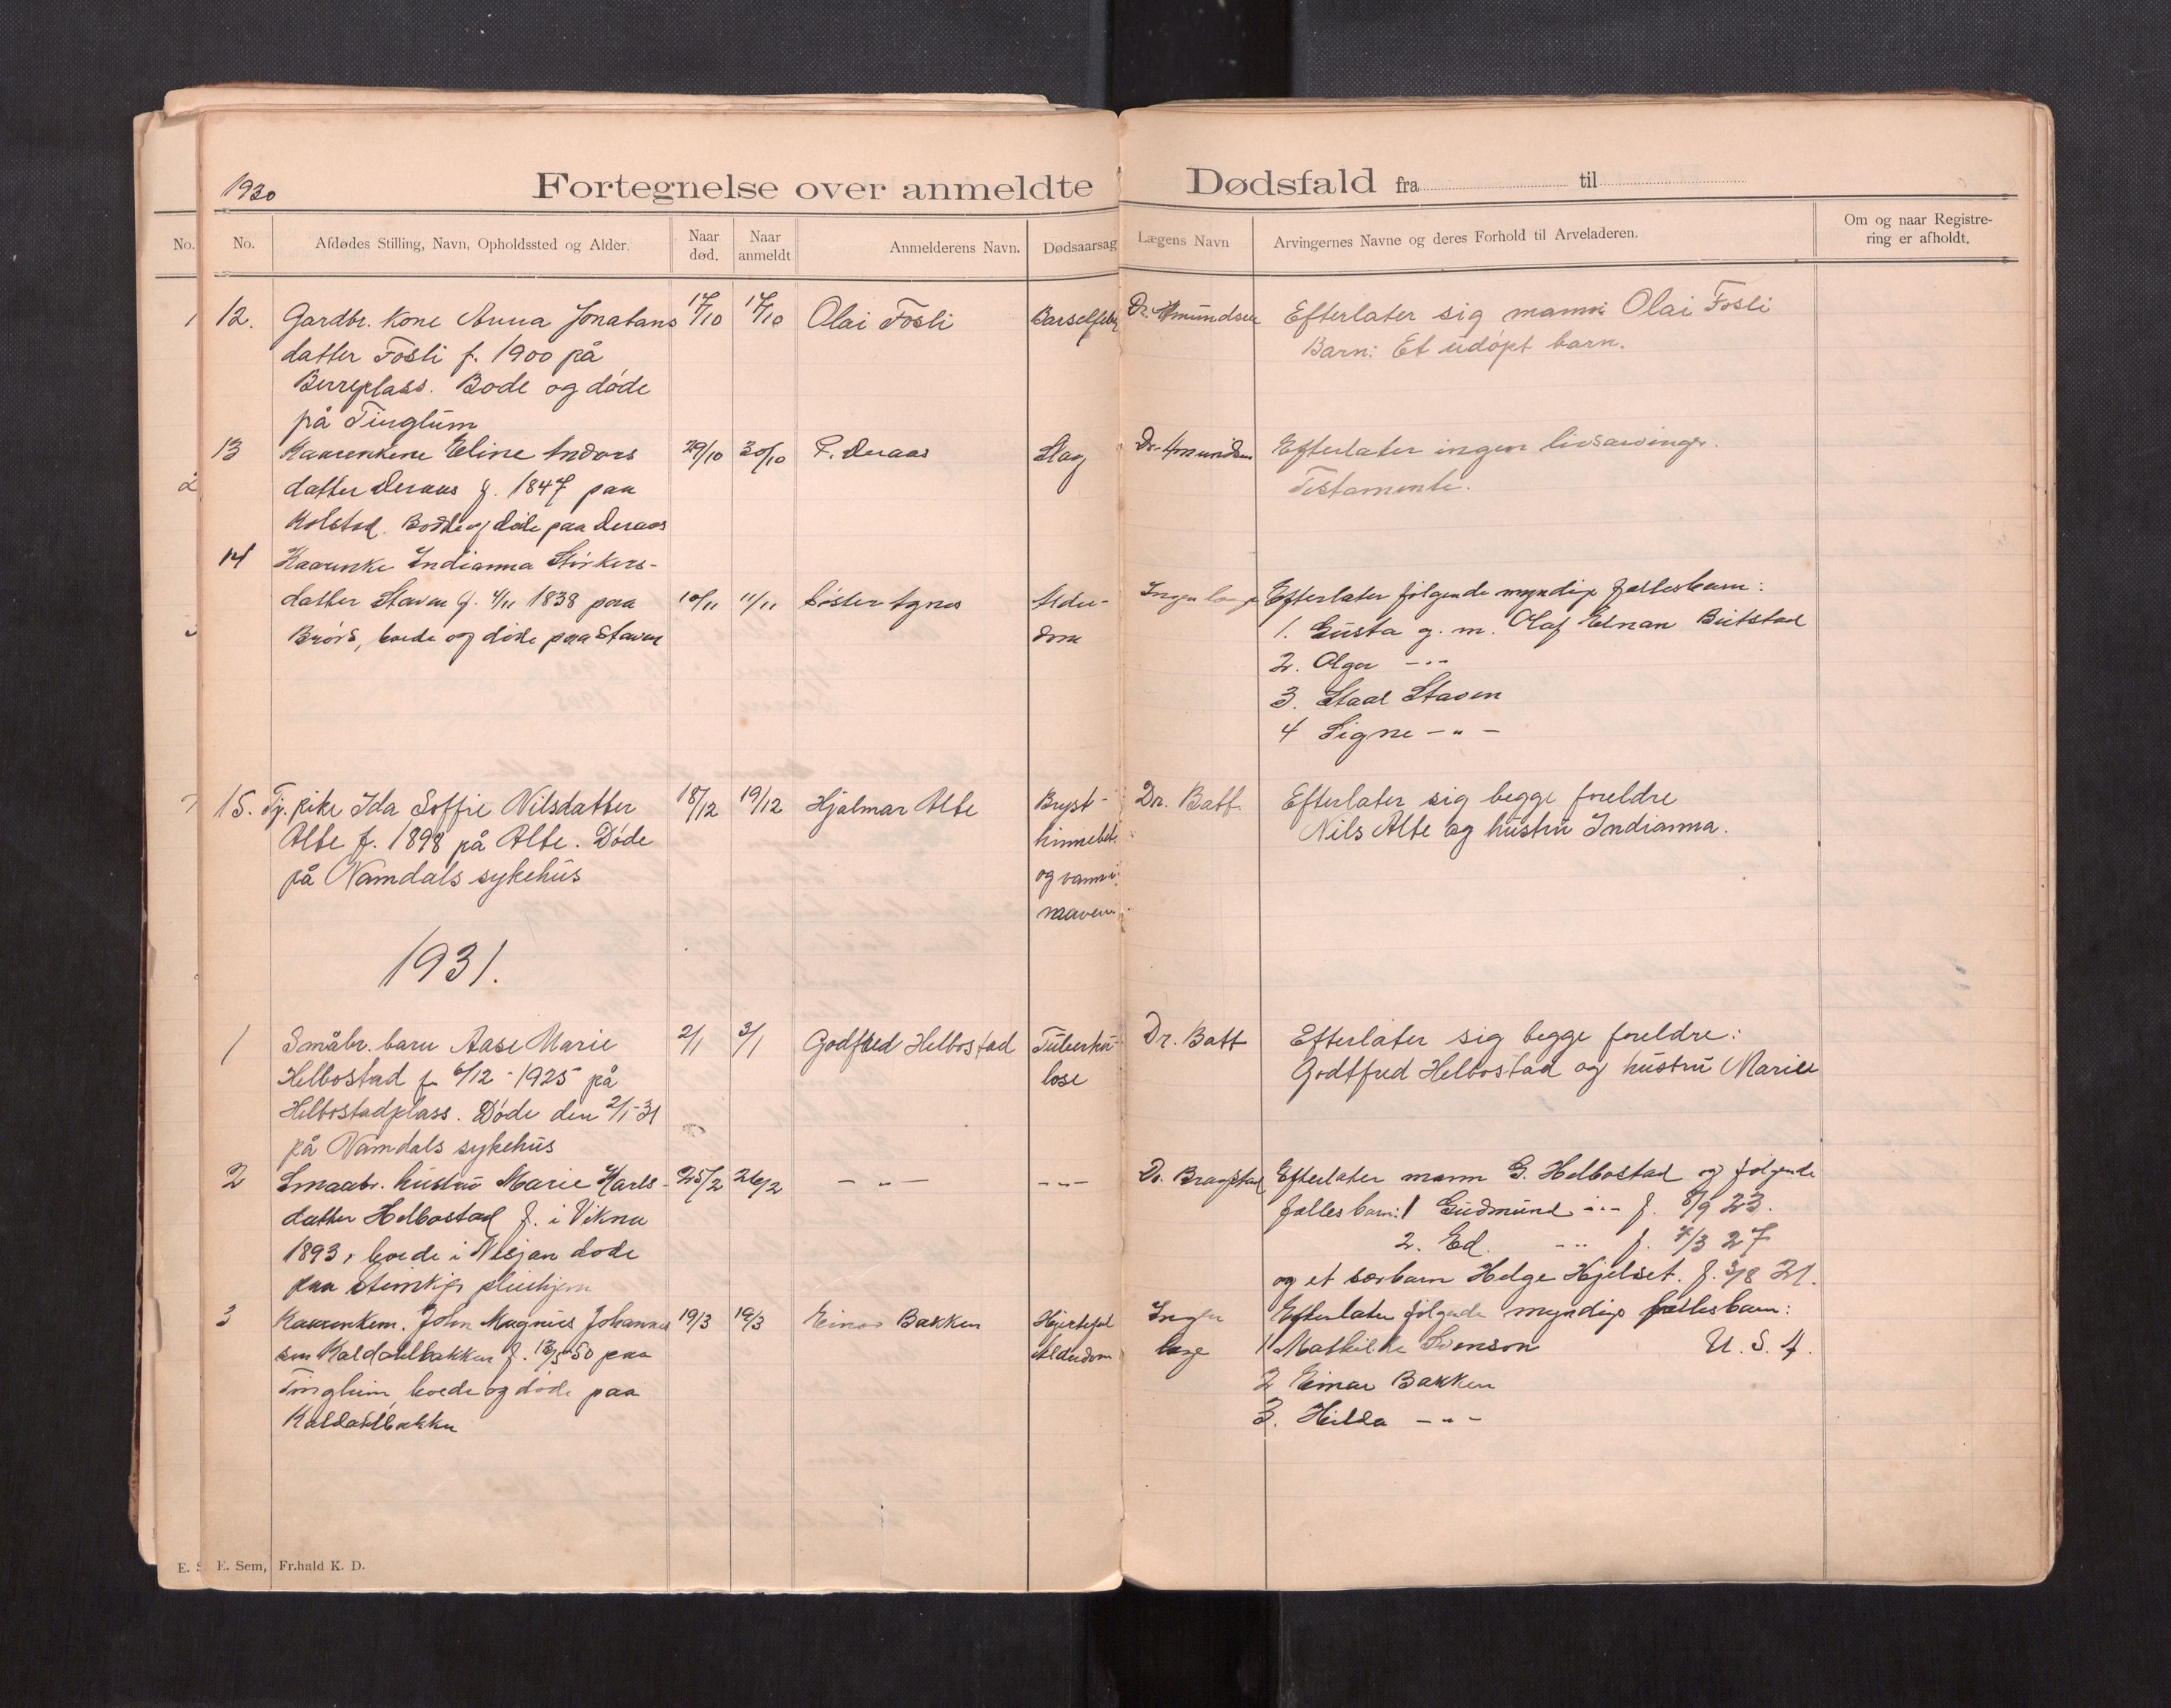 1930
Fortegnelse over anmeldte Dødsfald fra til
No. No. Afdødes Stilling, Navn, Opholdssted og Alder. Naar død. Naar anmeldt Anmelderens Navn. Dødsaarsag Lægens Navn Arvingernes Navne og deres Forhold til Arveladeren. Om og naar Registrering er afholdt.
12. Gardbr. Kone Anna Jonatans 17/10 17/10 Olai Fosli Barselfeb Dr. Amundsen Efterlater sig mann Olai Fosli
datter Fosli f. 1900 på Barn: Et udøpt barn.
Berreplass. Bode og døde
på Tinglum
13 Kaarenkene Eline Andors 29/10 30/10 P. Deraas Slag Dr. Amundsen Efterlater ingen livsarvinger.
datter Deraas f. 1847 paa Testamente.
Kolstad. Bodde og døde paa Deraas
14 Kaarenke Indianna Størkers-
datter Staven f. 4/11 1838 paa 10/11 11/11 Søster Agnes Alder- Ingen læge Efterlater følgende myndige fællesbarn:
Brørs, boede og døde paa Staven dom 1. Gusta g. m. Olaf Elnan Beitstad
2. Olga -"-
3. Staal Staven
4 Signe -"-
15. Tj. pike Ida Soffie Nilsdatter 18/12 19/12 Hjalmar Alte Bryst- Dr. Batt. Efterlater sig begge foreldre
Alte f. 1898 på Alte. Døde hinnebet. Nils Alte og hustru Indianna.
på Namdals sykehus og vann i
maven.
1931.
1 Småbr. barn Aase Marie 2/1 3/1 Godtfred Helbostad Tuberku- Dr. Batt Efterlater sig begge foreldre:
Helbostad f. 6/12-1925 på lose Godtfred Helbostad og hustru Marie
Helbostadplass. Døde den 2/1-31
på Namdals sykehus
2 Smaabr. hustru Marie Karls- 25/2 26/2 -"- -"- Dr. Bragstad Efterlater mann G. Helbostad og følgende
datter Helbostad f. i Vikna fællesbarn: 1 Gudmund -"- f. 8/9 23.
1893, boede i Nesjan døde 2. Ed. -"- f. 7/3 27
paa Steinkjer pleiehjem og et særbarn Helge Hjelset. f. 3/8 21.
3 Kaarenkem. John Magnus Johannes 19/3 19/3 Einar Bakken Hjertefeil Ingen Efterlater følgende myndige fællesbarn:
sen Kaldahlbakken f. 13/5-50 paa Alderdom læge 1 Mathilde Svenson U. S. A.
Tinglum, boede og døde paa 2 Einar Bakken
Kaldahlbakken 3. Hilda -"-
E. Sem, Fr.hald K. D.